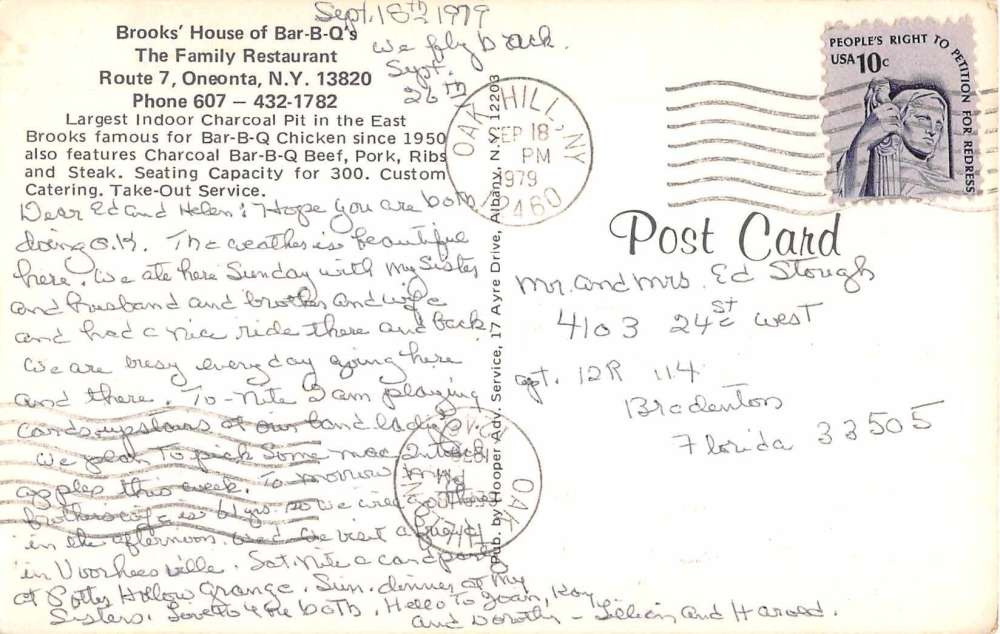 Sept. 18th 1979
We fly back.
Sept.
26th
Brooks' House of Bar-B-Q's
The Family Restaurant
Route 7, Oneonta, N.Y. 13820
Phone 607 – 432-1782
Largest Indoor Charcoal Pit in the East
Brooks famous for Bar-B-Q Chicken since 1950
also features Charcoal Bar-B-Q Beef, Pork, Ribs
and Steak. Seating Capacity for 300. Custom
Catering. Take-Out Service.
Dear Ed and Helen: Hope you are both
doing O.K. The weather is beautiful
here. We ate here Sunday with my Sister
and husband and brother and wife
and had a nice ride there and back.
We are busy every day going here
and there. To-Nite I am playing
cards upstairs at our land ladies.
We plan to pick some macintosh
apples this week. To morrow my
brothers wife is 61 yrs. so we will go there
in the afternoon. Wed. we visit a friend
in Voorheesville. Sat. Nite a card party
at Potter Hollow Grange. Sun. dinner at my
Sisters. Love to you both. Hello to Joan, Roy,
and Dorothy – Lillian and Harold.
Pub. by Hooper Adv. Service, 17 Ayre Drive, Albany, N.Y. 12203
OAK HILL, NY
SEP 18
PM
1979
12460
PEOPLE'S RIGHT TO PETITION FOR REDRESS
USA 10c
Post Card
Mr. and Mrs. Ed Stough
4103 24st West
apt. 12R 114
Bradenton
Florida 33505
OAK HILL, NY
PM